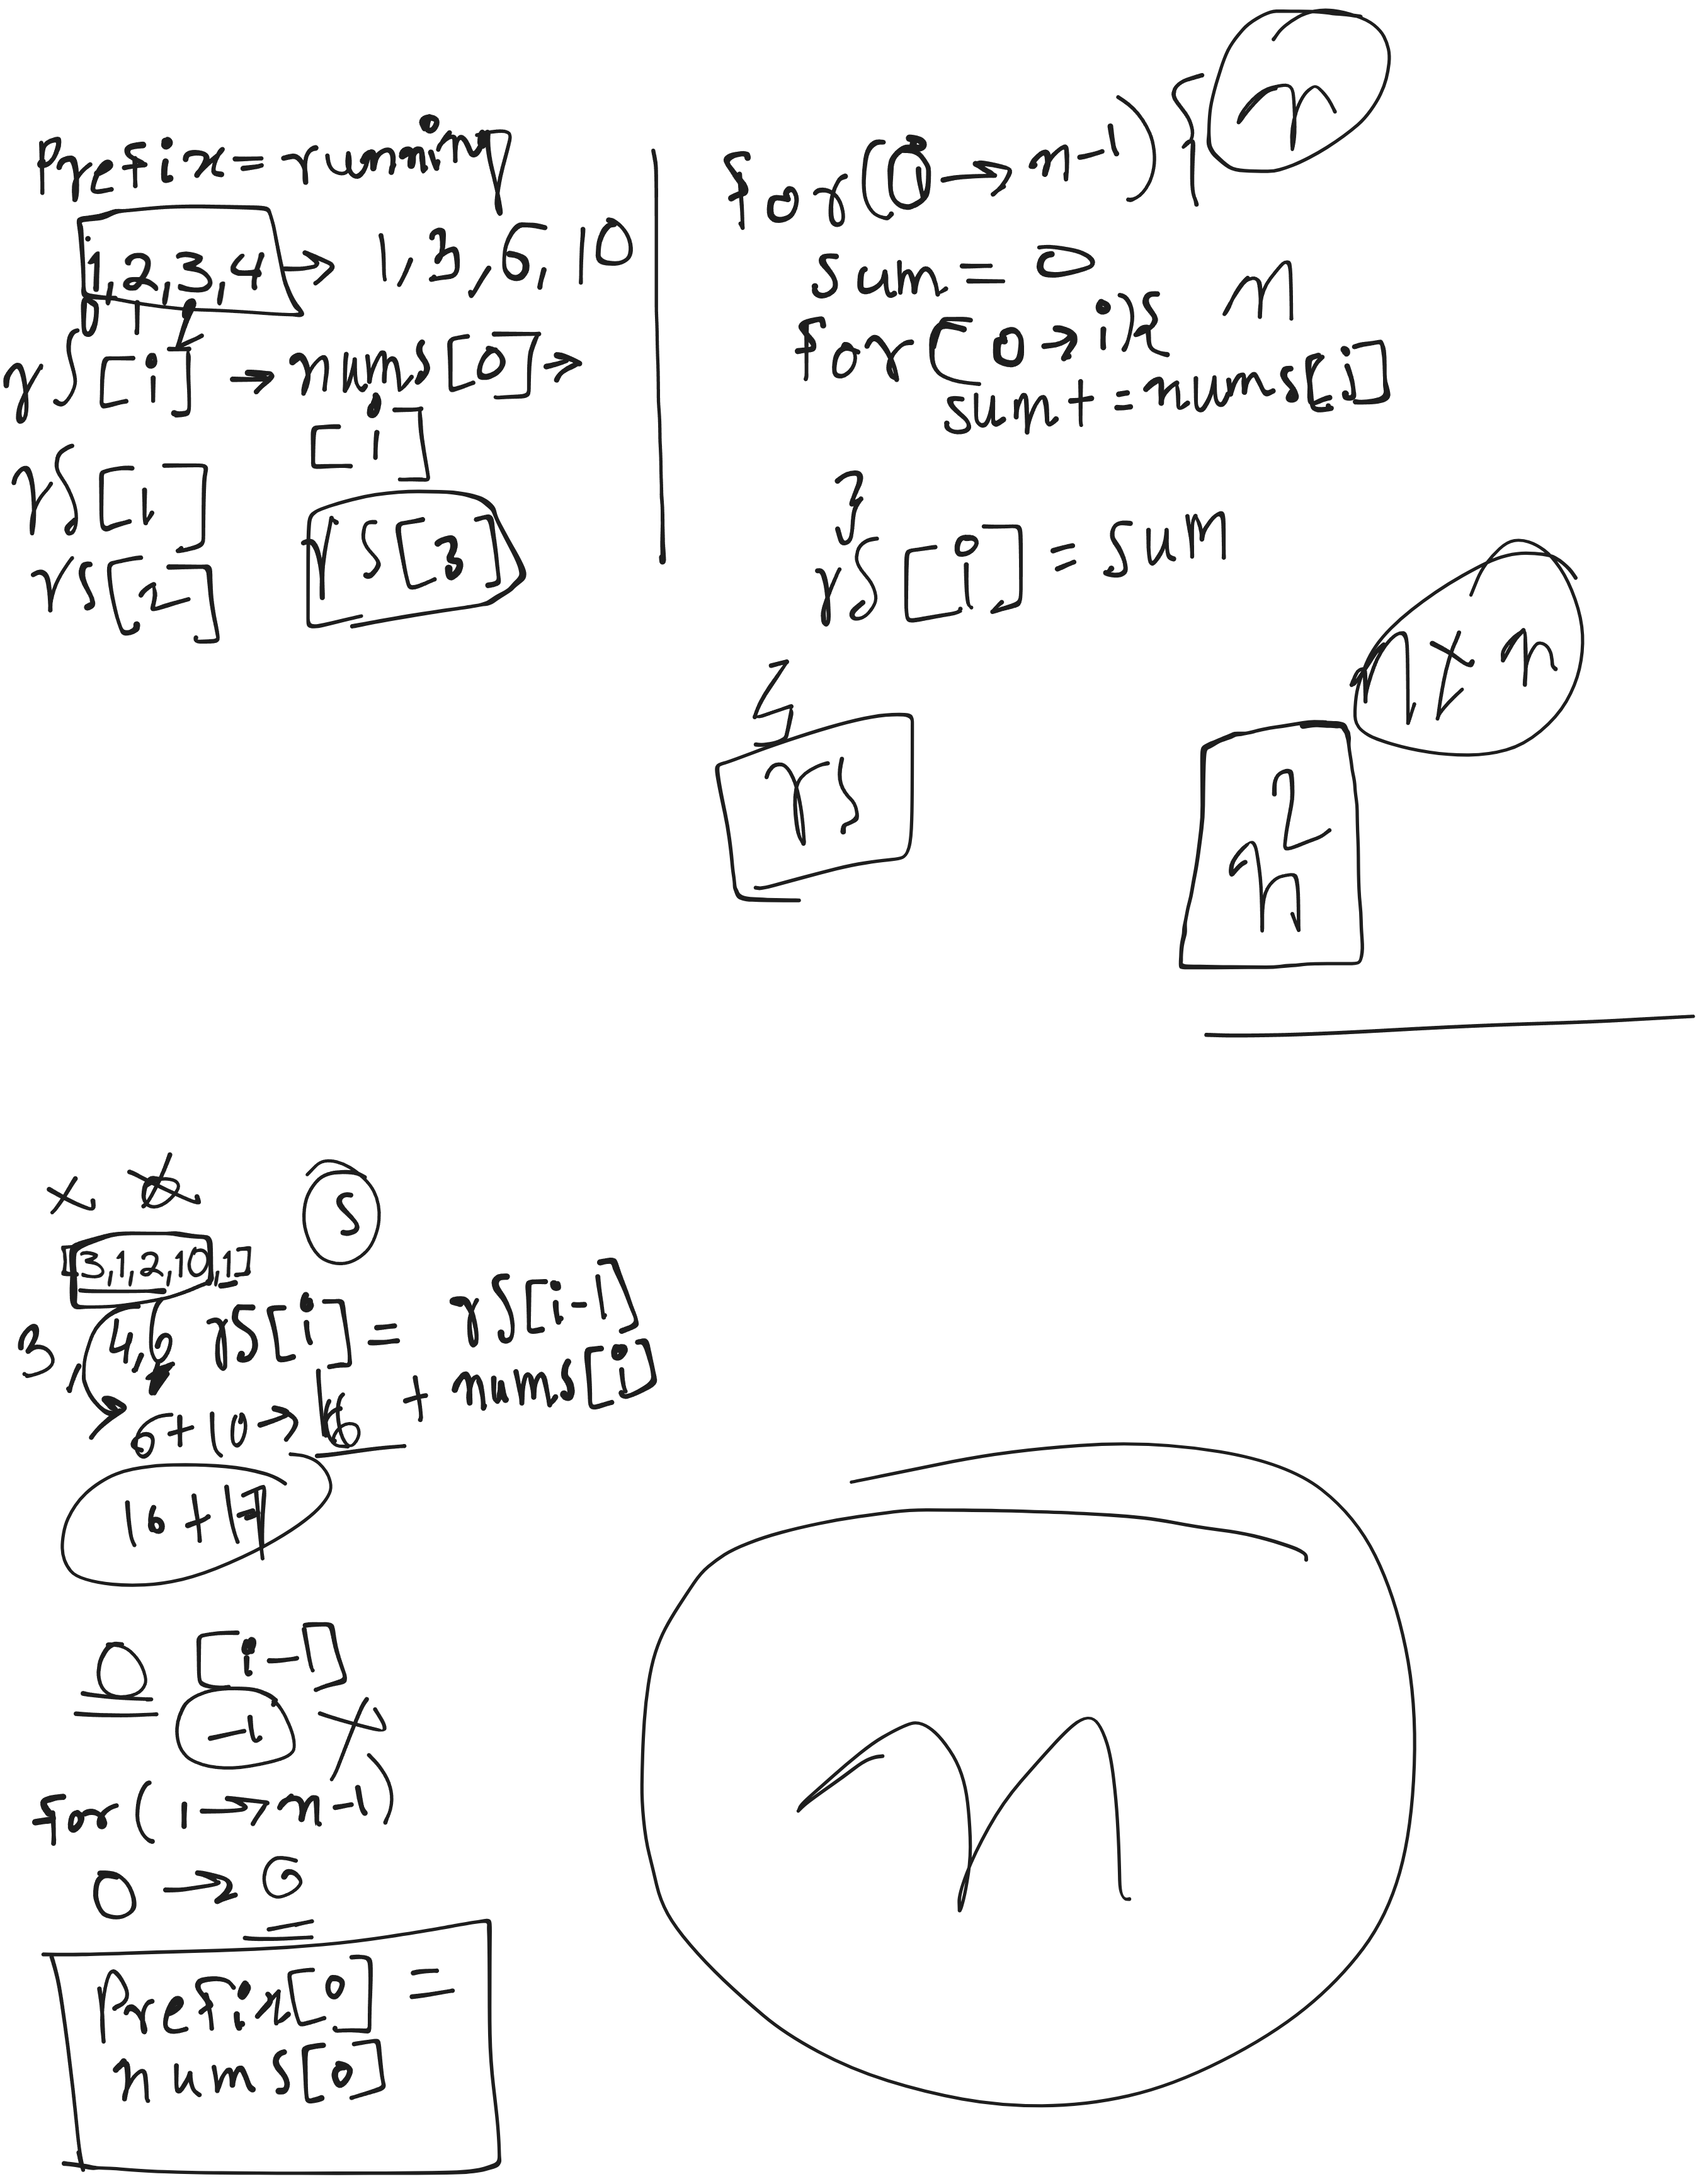 prefix = running
1, 2, 3, 4 → 1, 3, 6, 10
rs[i] → nums[0] →
[i]
rs[1]
rs[2]
rs[3]
for(0 → n-1){
n
sum = 0
for(0 → i){
n
sum += nums[j]
}
rs[i] = sum
}
rs
n × n
n²
5
[3,1,2,10,1]
3, 4, 6
rs[i] = rs[i-1]
+ nums[i]
6 + 10 → 16
16 + 1 17
0 [i-1]
-1 ×
for(1 → n-1)
0 →
prefix[0] =
nums[0]
n